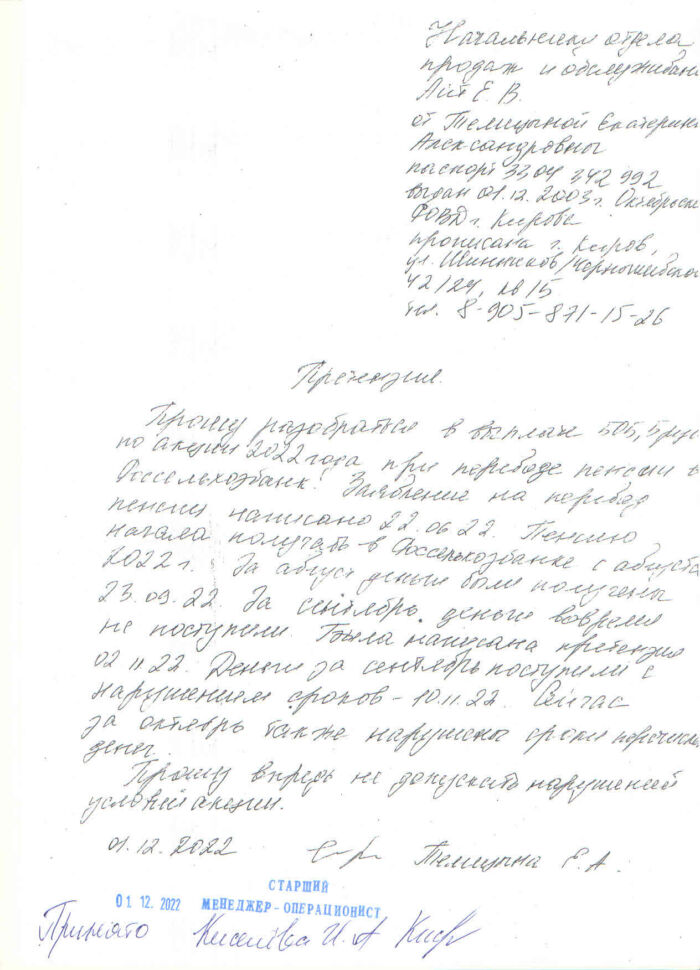 Начальнику отдела
продаж и обслуживан
Айт Е. В.
от Темицыной Екатерин
Александровны
паспорт 3304 342 992
выдан 01.12.2003г. Октябрьск
РОВД г. Кирова
прописана г. Киров,
ул. Шинников/Чернышевско
42/24, кв 15
тел. 8-905-871-15-26
Претензия.
Прошу разобраться в выплаче 505,5 руб
по акции 2022 года при переводе пенсии в
Россельхозбанк! Заявление на перевод
пенсии написано 22.06.22. Пенсию
начала получать в Россельхозбанке с августа
2022 г. За август деньги были получены
23.09.22. За сентябрь деньги вовремя
не поступили. Была написана претензия
02.11.22. Деньги за сентябрь поступили с
нарушением сроков - 10.11.22. Сейчас
за октябрь также нарушены сроки перечислен
денег.
Прошу впредь не допускать нарушений
условий акции.
01.12.2022 Темицына Е. А.
СТАРШИЙ
01 12. 2022 МЕНЕДЖЕР-ОПЕРАЦИОНИСТ
Принято Киселёва И. А